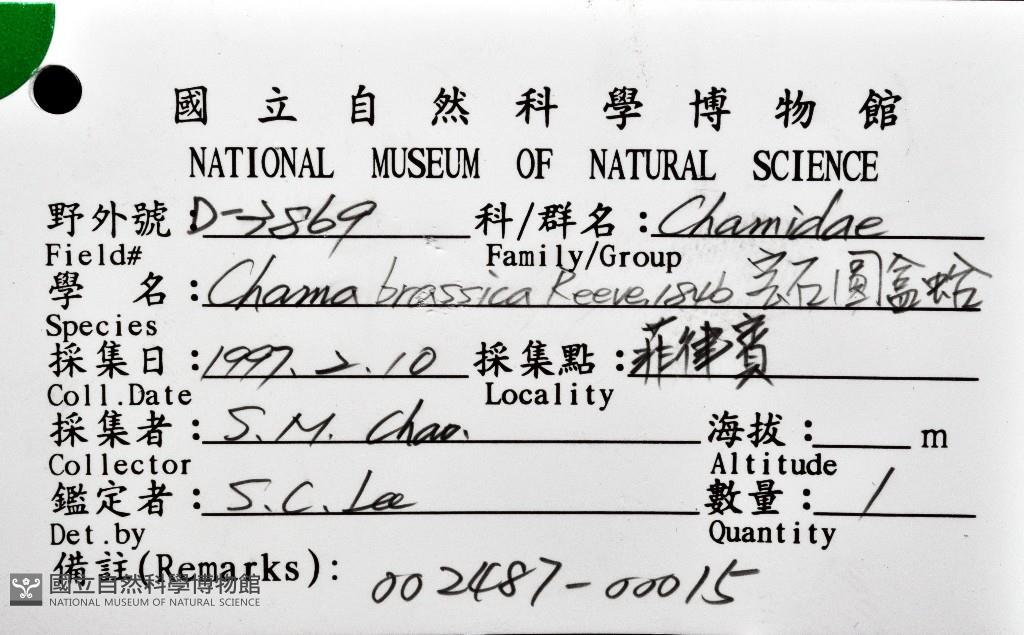 國立自然科學博物館
NATIONAL MUSEUM OF NATURAL SCIENCE
野外號:D-3869 科/群名:Chamidae
Field# Family/Group
學 名:Chama brassica Reeve, 1846 宝石圓盒蛤
Species
採集日:1997. 2. 10 採集點:菲律賓
Coll.Date Locality
採集者:S. M. Chao. 海拔: m
Collector Altitude
鑑定者:S. C. Lee 數量:1
Det.by Quantity
備註(Remarks): 002487-00015
國立自然科學博物館
NATIONAL MUSEUM OF NATURAL SCIENCE